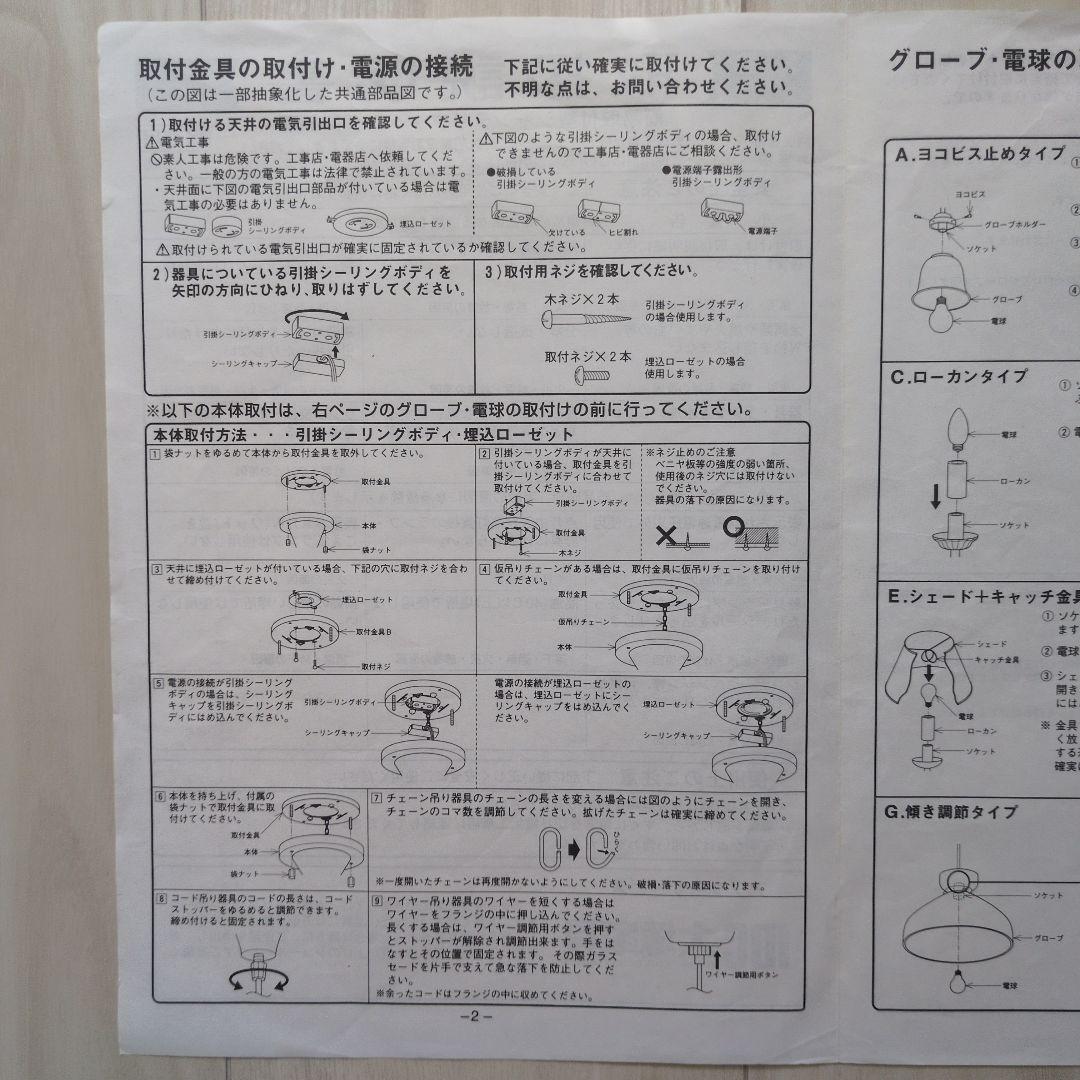 取付金具の取付け・電源の接続
下記に従い確実に取付けてください。
(この図は一部抽象化した共通部品図です。)
不明な点は、お問い合わせください。
1)取付ける天井の電気引出口を確認してください。
⚠電気工事
🚫素人工事は危険です。工事店・電器店へ依頼してくだ
さい。一般の方の電気工事は法律で禁止されています。
・天井面に下図の電気引出口部品が付いている場合は電
気工事の必要はありません。
引掛
シーリングボディ
埋込ローゼット
⚠下図のような引掛シーリングボディの場合、取付け
できませんので工事店・電器店にご相談ください。
●破損している
引掛シーリングボディ
●電源端子露出形
引掛シーリングボディ
欠けている
ヒビ割れ
電源端子
⚠取付けられている電気引出口が確実に固定されているか確認してください。
2)器具についている引掛シーリングボディを
矢印の方向にひねり、取りはずしてください。
引掛シーリングボディ
シーリングキャップ
3)取付用ネジを確認してください。
木ネジ×2本
引掛シーリングボディ
の場合使用します。
取付ネジ×2本
埋込ローゼットの場合
使用します。
※以下の本体取付は、右ページのグローブ・電球の取付けの前に行ってください。
本体取付方法・・・引掛シーリングボディ・埋込ローゼット
1 袋ナットをゆるめて本体から取付金具を取外してください。
取付金具
本体
袋ナット
2 引掛シーリングボディが天井に
付いている場合、取付金具を引
掛シーリングボディに合わせて
取付けてください。
引掛シーリングボディ
取付金具
木ネジ
※ネジ止めのご注意
ベニヤ板等の強度の弱い箇所、
使用後のネジ穴には取付けない
でください。
器具の落下の原因になります。
3 天井に埋込ローゼットが付いている場合、下記の穴に取付ネジを合わ
せて締め付けてください。
埋込ローゼット
取付金具B
取付ネジ
4 仮吊りチェーンがある場合は、取付金具に仮吊りチェーンを取り付け
てください。
取付金具
仮吊りチェーン
本体
5 電源の接続が引掛シーリング
ボディの場合は、シーリング
キャップを引掛シーリングボ
ディにはめ込んでください。
引掛シーリングボディ
シーリングキャップ
電源の接続が埋込ローゼットの
場合は、埋込ローゼットにシー
リングキャップをはめ込んでく
ださい。
埋込ローゼット
シーリングキャップ
6 本体を持ち上げ、付属の
袋ナットで取付金具に取
付けてください。
取付金具
本体
袋ナット
7 チェーン吊り器具のチェーンの長さを変える場合には図のようにチェーンを開き、
チェーンのコマ数を調節してください。拡げたチェーンは確実に締めてください。
ひらく
※一度開いたチェーンは再度開かないようにしてください。破損・落下の原因になります。
8 コード吊り器具のコードの長さは、コード
ストッパーをゆるめると調節できます。
締め付けると固定されます。
9 ワイヤー吊り器具のワイヤーを短くする場合は
ワイヤーをフランジの中に押し込んでください。
長くする場合は、ワイヤー調節用ボタンを押す
とストッパーが解除され調節出来ます。手をは
なすとその位置で固定されます。その際ガラス
セードを片手で支えて急な落下を防止してくだ
さい。
※余ったコードはフランジの中に収めてください。
ワイヤー調節用ボタン
-2-
グローブ・電球の
A.ヨコビス止めタイプ
①
②
③
④
ヨコビス
グローブホルダー
ソケット
グローブ
電球
C.ローカンタイプ
①
② 電
電球
ローカン
ソケット
E.シェード+キャッチ金具
① ソケ
ます
② 電球
③ シェ
開き
には
※ 金具
く放
する
確実に
シェード
キャッチ金具
電球
ローカン
ソケット
G.傾き調節タイプ
ソケット
グローブ
電球